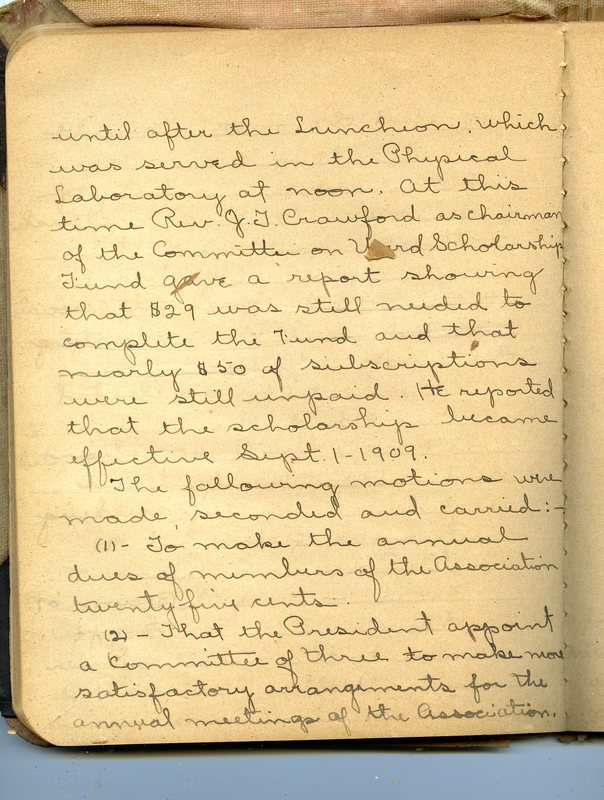 until after the Luncheon, which
was served in the Physical
Laboratory at noon. At this
time Rev. J. T. Crawford as chairman
of the Committee on Ward Scholarship
Fund gave a report showing
that $29 was still needed to
complete the Fund and that
nearly $50 of subscriptions
were still unpaid. He reported
that the scholarship became
effective Sept. 1-1909.
The following motions were
made, seconded and carried:-
(1)- To make the annual
dues of members of the Association
twenty five cents.
(2)- That the President appoint
a Committee of three to make more
satisfactory arrangements for the
annual meetings of the Association.